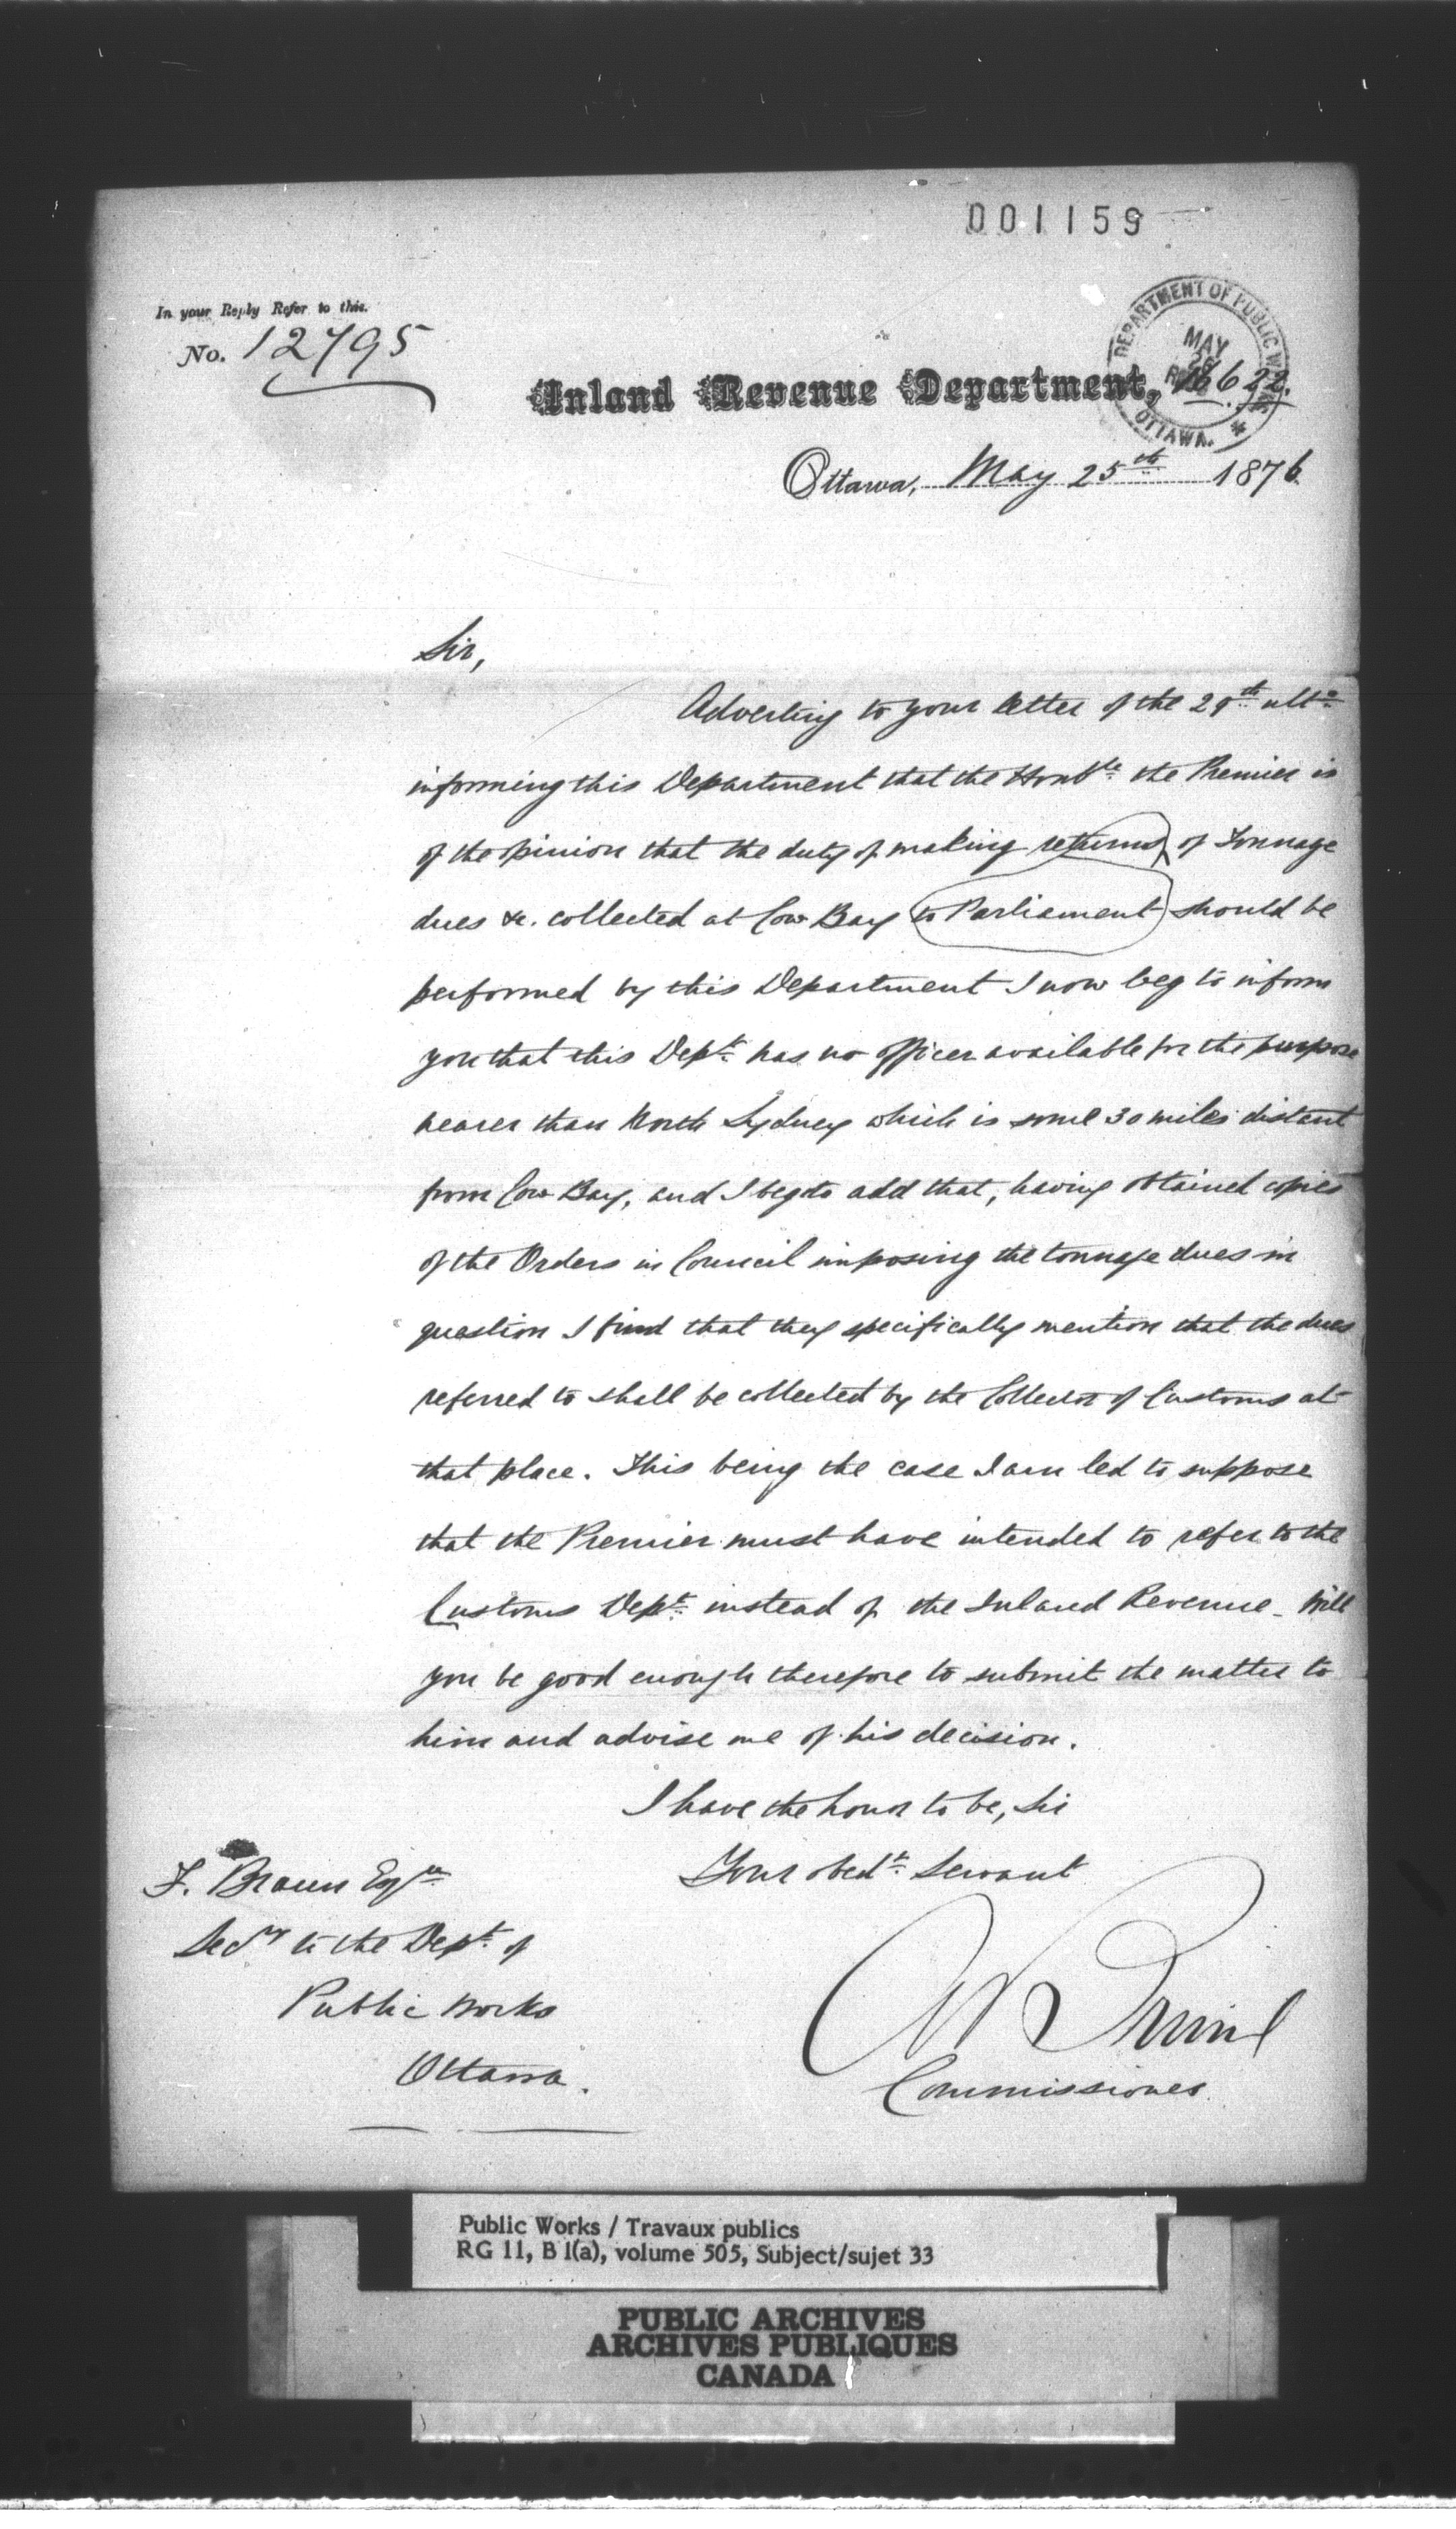 001159
In your Reply Refer to this.
No. 12795
DEPARTMENT OF PUBLIC WORKS
MAY
26
OTTAWA.
Inland Revenue Department,
Ottawa, May 25th 1876
Sir,
Adverting to your letter of the 29th ulto
informing this Department that the Honble the Premier is
of the opinion that the duty of making returns of Tonnage
dues &c. collected at Cow Bay to Parliament should be
performed by this Department I now beg to inform
you that this Dept has no officer available for the purpose
nearer than North Sydney which is some 30 miles distant
from Cow Bay, and I beg to add that, having obtained copies
of the Orders in Council imposing the tonnage dues in
question I find that they specifically mention that the dues
referred to shall be collected by the Collector of Customs at
that place. This being the case I am led to suppose
that the Premier must have intended to refer to the
Customs Dept instead of the Inland Revenue - Will
you be good enough therefore to submit the matter to
him and advise me of his decision.
I have the honor to be, Sir
Your obedt Servant
F. Braun Esqre
Secy to the Dept of
Public Works
Ottawa.
Commissioner
Public Works / Travaux publics
RG 11, B 1(a), volume 505, Subject/sujet 33
PUBLIC ARCHIVES
ARCHIVES PUBLIQUES
CANADA